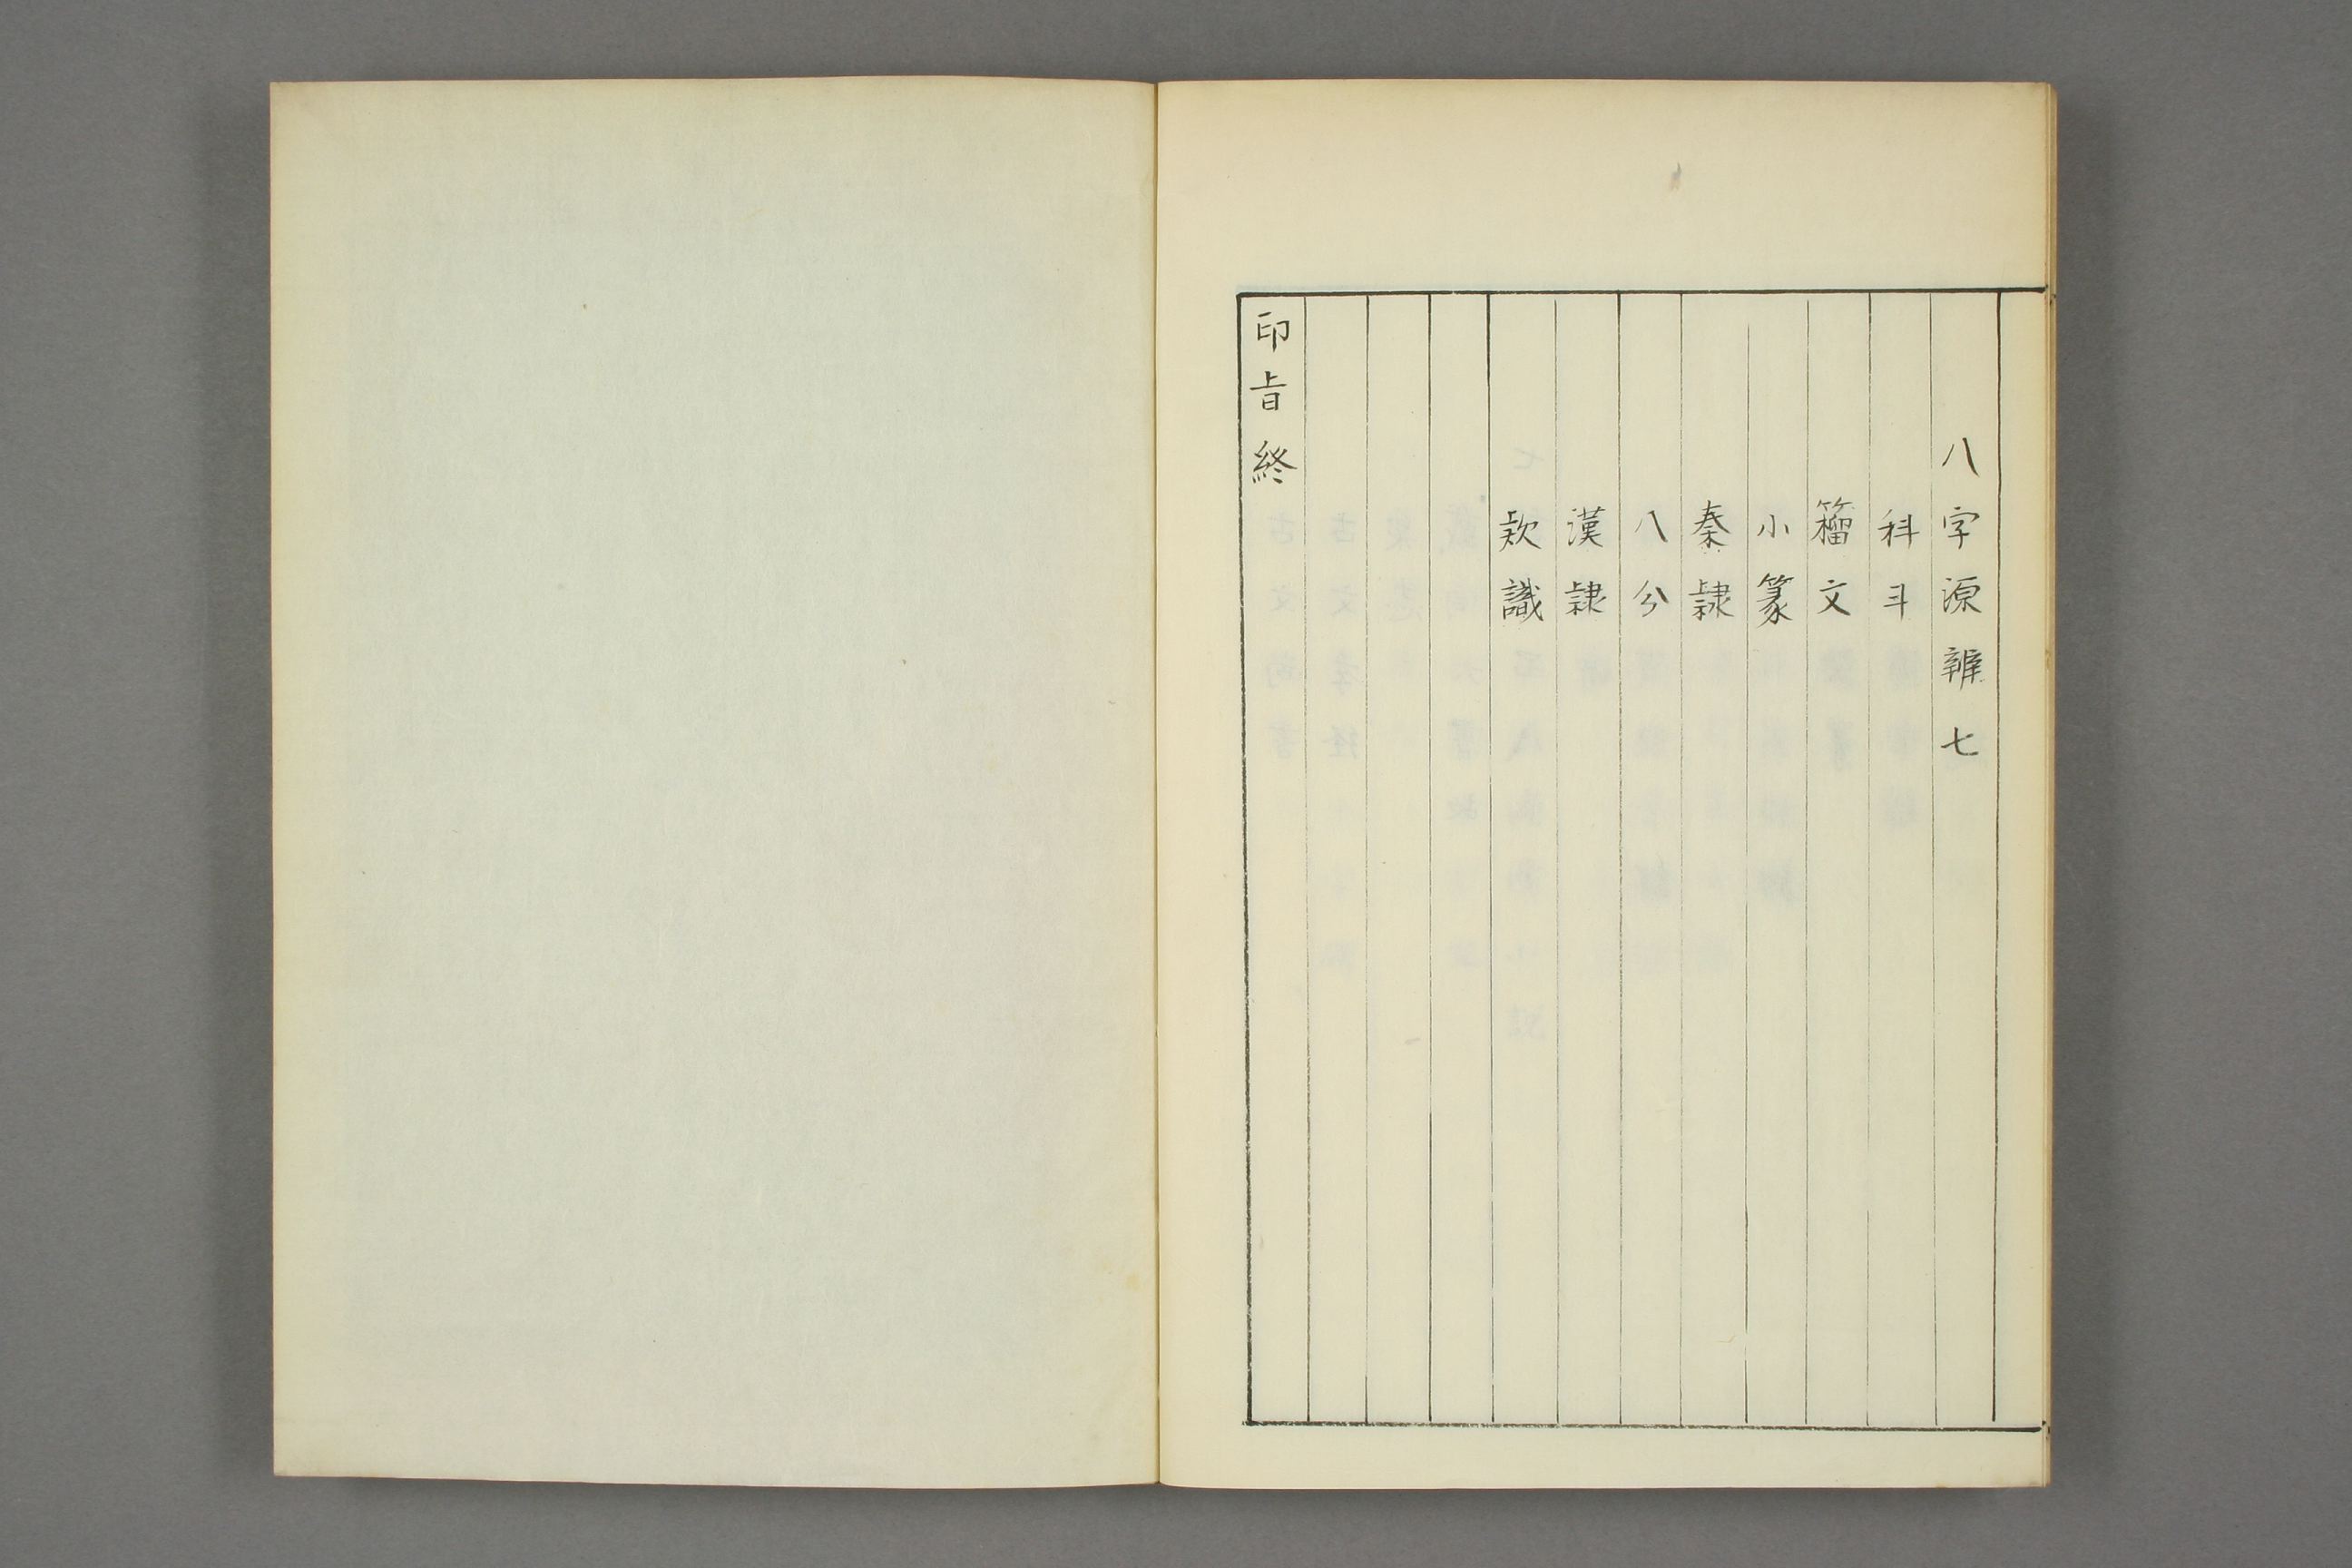 八字源辨七
科斗
籀文
小篆
秦隷
八分
漢隷
款識
印旨終